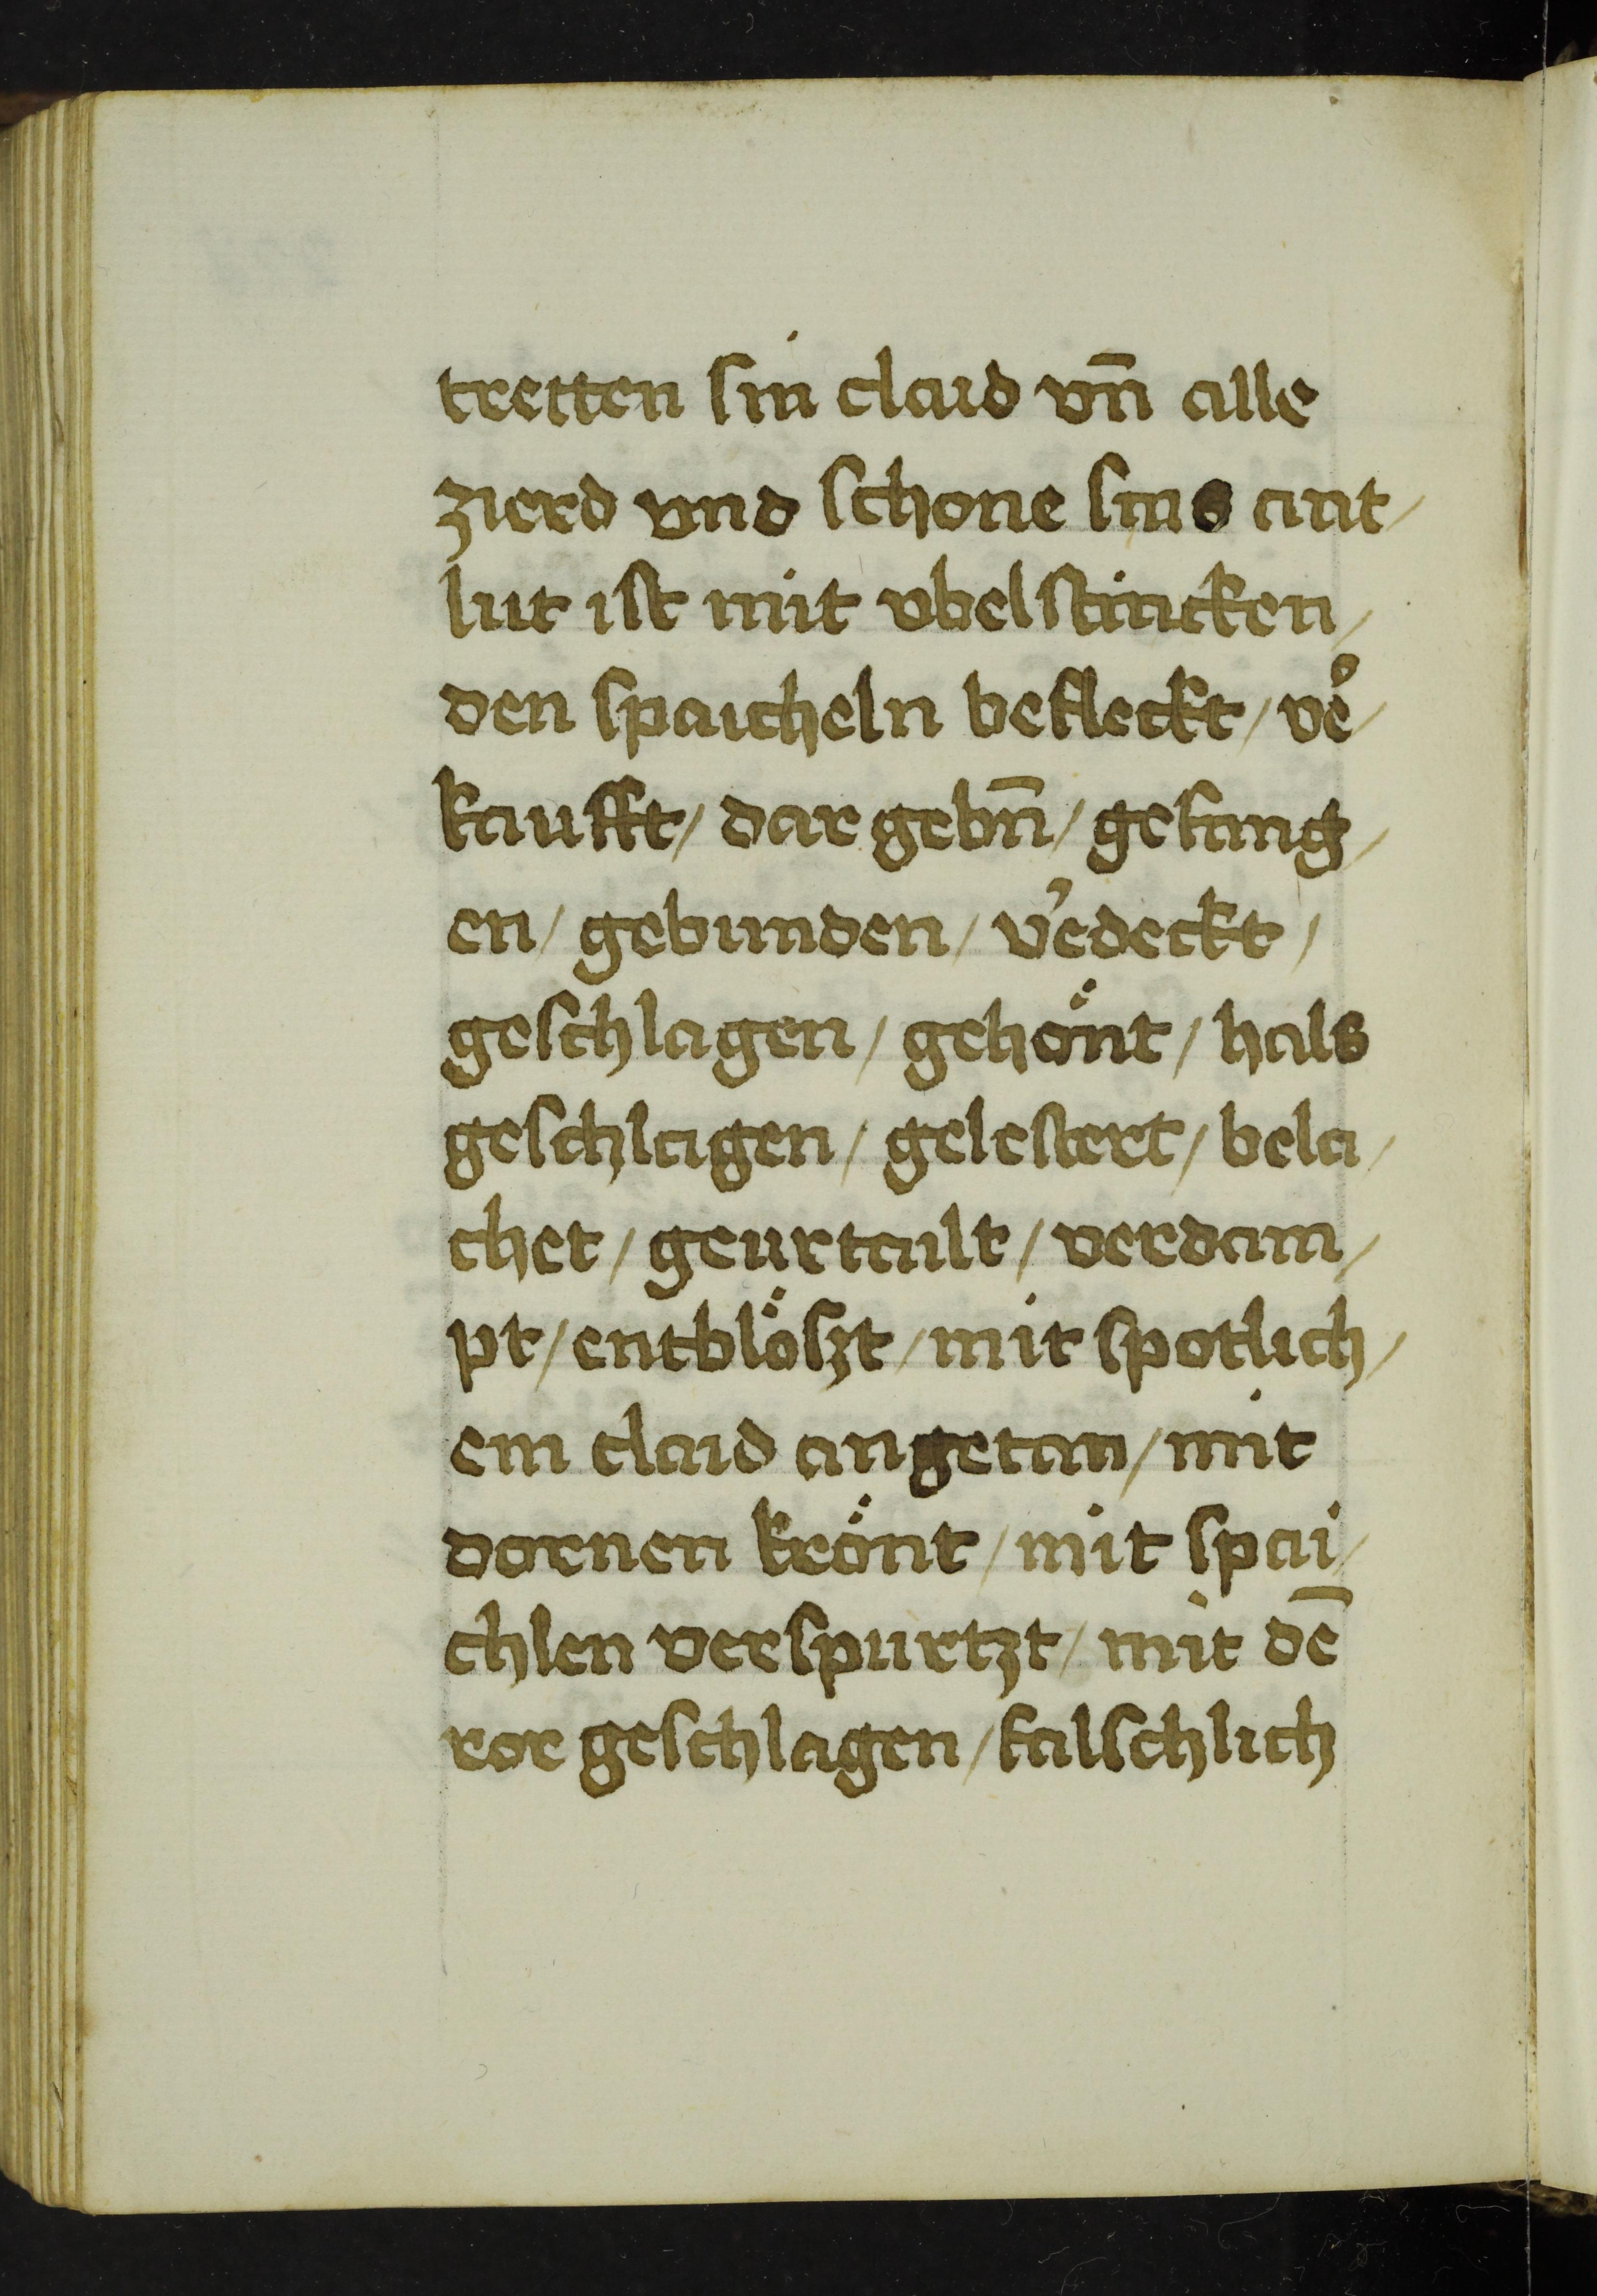 tretten sin claid vn̄ alle
zierd vnd schone sins ant/
lut ist mit vbelstincken/
den spaicheln befleckt/ ve᷑/
kaufft/ dar gebn̄/ gefang/
en/ gebunden/ v᷑edeckt/
geschlagen/ gehönt/ hals
geschlagen/ gelestert/ bela/
chet/ geurtailt/ verdam/
pt/ entblöszt/ mit spotlich/
em claid angetan/ mit
dornen krönt/ mit spai/
chlen verspurtzt/ mit dē
ror geschlagen/ falschlich